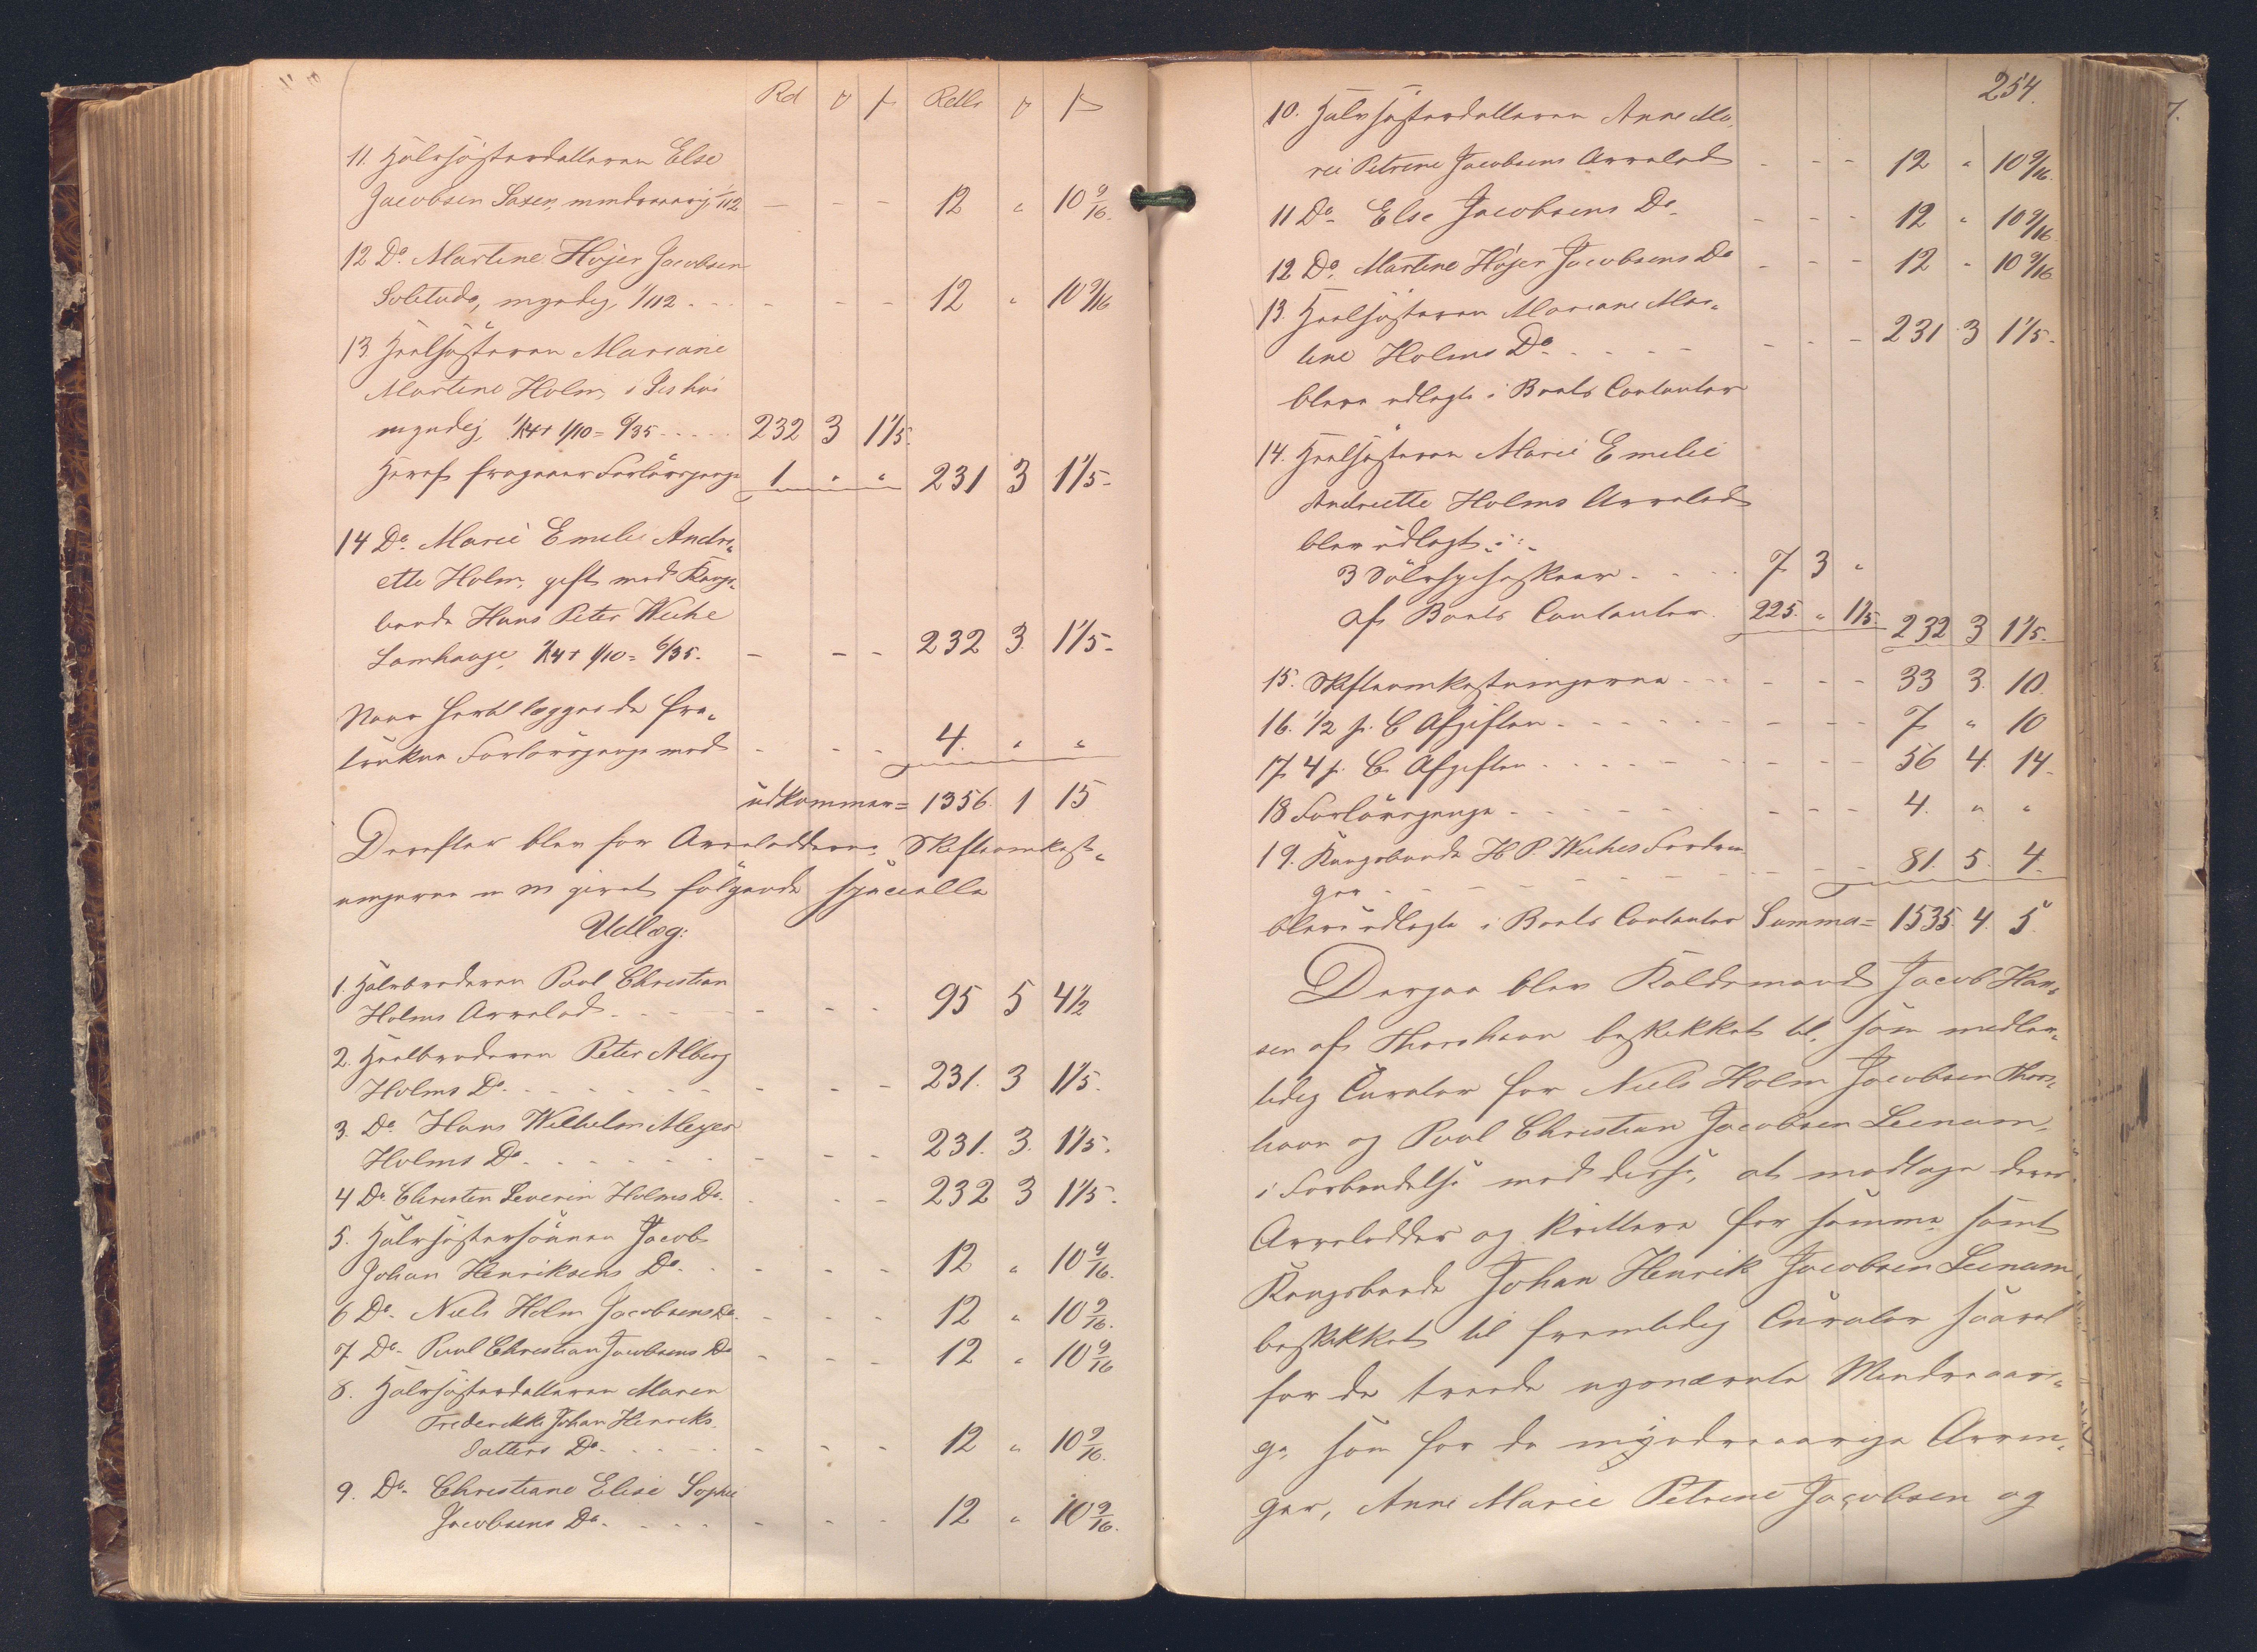 Rd ℳ ß Rdlr ℳ ß
11. Halvsøsterdatteren Else
Jacobsen Saxen, mindreaarig, 1/112 - - - 12 " 10 9/16.
12 Do. Martine Højer Jacobsen
Solitude, myndig, 1/112 - - - 12 " 10 9/16
13. Heelsøsteren Mariane
Martine Holm,
myndig, 1/14 + 1/10 = 6/35 232 3 1 1/5.
Heraf fragaaer Forlovspenge 1 " " 231 3 1 1/5.
14 Do. Marie Emilie Andri-
ette Holm, gift med Kongs-
bonde Hans Peter Weihe
Lamhauge, 1/14 + 1/10 = 6/35. - - - 232 3 1 1/5.
Naar hertil lægges de fra-
trukne Forlovspenge med - - - 4. " "
udkommer = 1356. 1 15
Derefter blev for Arvelodderne, Skifteomkost-
ningerne m m gjort følgende specielle
Udlæg:
1. Halvbroderen Poul Christian
Holms Arvelod - - - 95 5 4 1/2
2. Heelbroderen Peter Alberg
Holms Do. - - - 231. 3 1 1/5.
3. Do. Hans Wilhelm Meyer
Holms Do. - - - 231. 3. 1 1/5.
4 Do. Christen Severin Holms Do. - - 232 3 1 1/5.
5. Halvsøstersønnen Jacob
Johan Henriksens Do. - - - 12 " 10 9/16.
6 Do. Niels Holm Jacobsens Do. - - - 12 " 10 9/16.
7 Do. Poul Christian Jacobsens Do - - - 12 " 10 9/16
8. Halvsøsterdatteren Maren
Frederikke Johan Henriks
Datters Do. - - - 12 " 10 9/16.
9. Do. Christiane Elise Sophie
Jacobsens Do. - - - 12 " 10 9/16.
254.
10. Halvsøsterdatteren Anne Ma-
rie Petrine Jacobsens Arvelod - - - 12 " 10 9/16.
11 Do. Else Jacobsens Do. - - - 12 " 10 9/16
12 Do. Martine Højer Jacobsens Do - - - 12 " 10 9/16
13. Heelsøsteren Mariane Mar-
tine Holms Do. - - - 231 3 1 1/5.
bleve udlagte i Boets Contanter
14. Heelsøsteren Marie Emilie
Andriette Holms Arvelod
blev udlagt i:
3 Sølvspiseskeer - - 7 3 "
af Boets Contanter. 225. " 1 1/5. 232 3 1 1/5.
15. Skifteomkostningerne - - - 33 3. 10.
16. 1/2 p. C Afgiften - - - 7 " 10
17. 4 p. C. Afgiften - - - 56 4. 14.
18 Forlovspenge - - - 4. " "
19. Kongsbonde H. P. Weihes Fordrin-
ger - - - 81. 5. 4.
bleve udlagte i Boets Contanter Summa = 1535. 4. 5.
Derpaa blev Koldsmand Jacob Han-
sen af Thorshavn beskikket til, som midler-
tidig Curator for Niels Holm Jacobsen Thors-
havn og Poul Christian Jacobsen Leinum,
i Forbindelse med disse, at modtage deres
Arvelodder og kvittere for samme samt
Kongsbonde Johan Henrik Jacobsen Leinum
beskikket til fremtidig Curator saavel
for de tvende ugenævnte Mindreaari-
ge, som for de mindreaarige Arvin-
ger, Anne Marie Petrine Jacobsen og